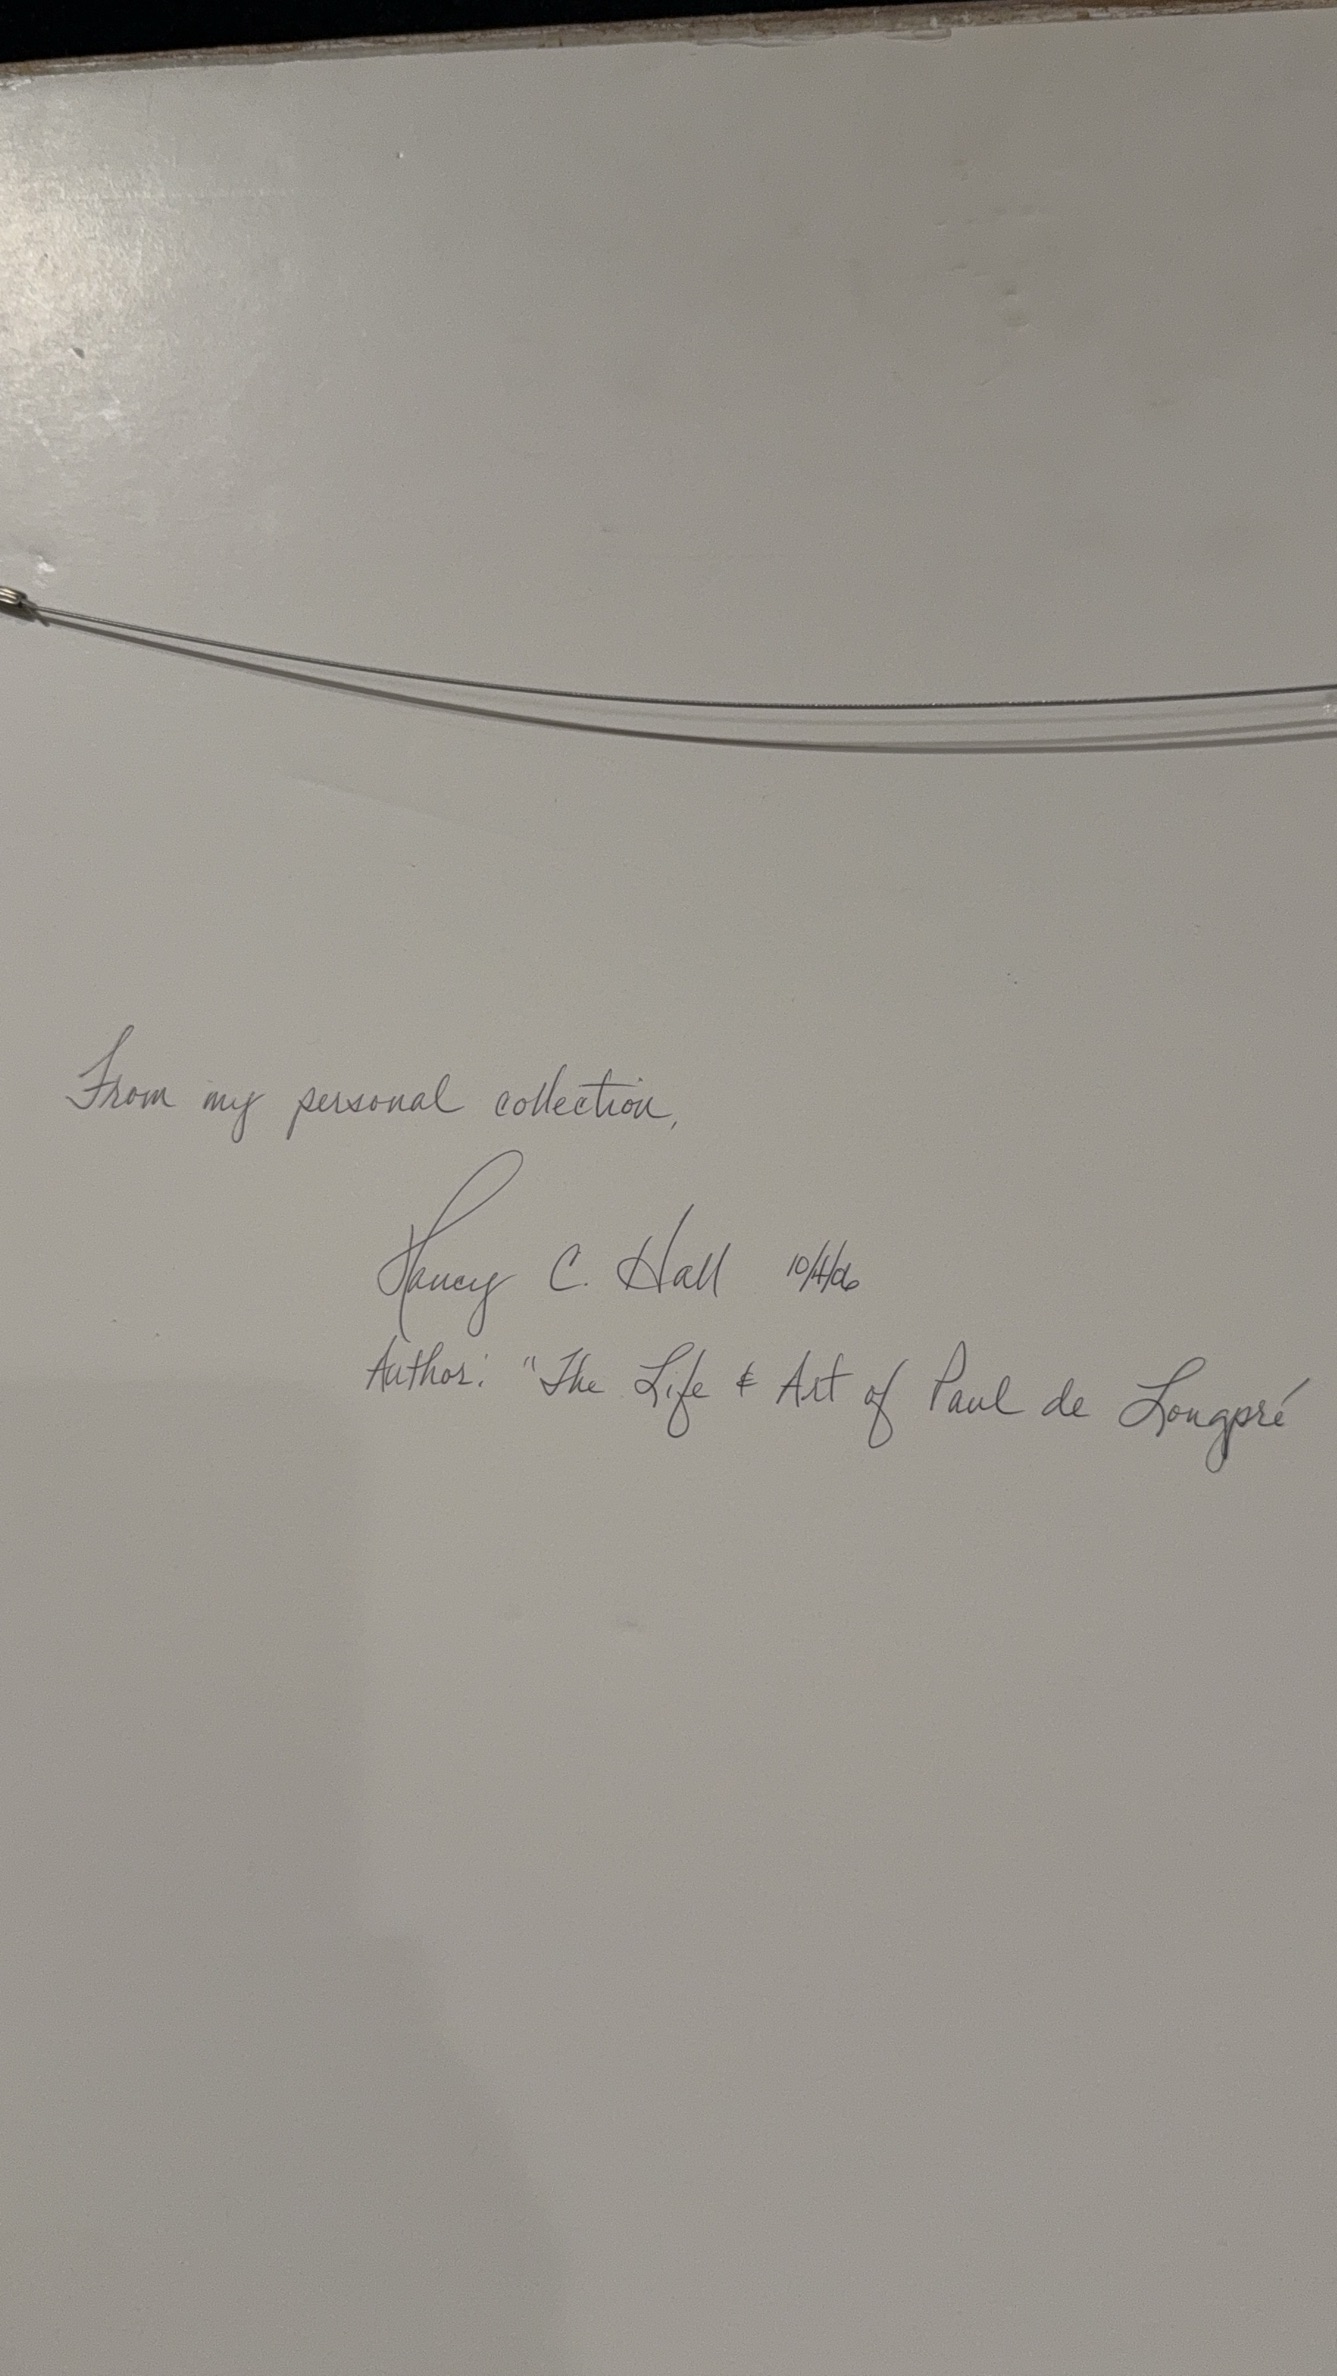 From my personal collection,
Nancy C. Hall 10/4/06
Author: "The Life & Art of Paul de Longpré